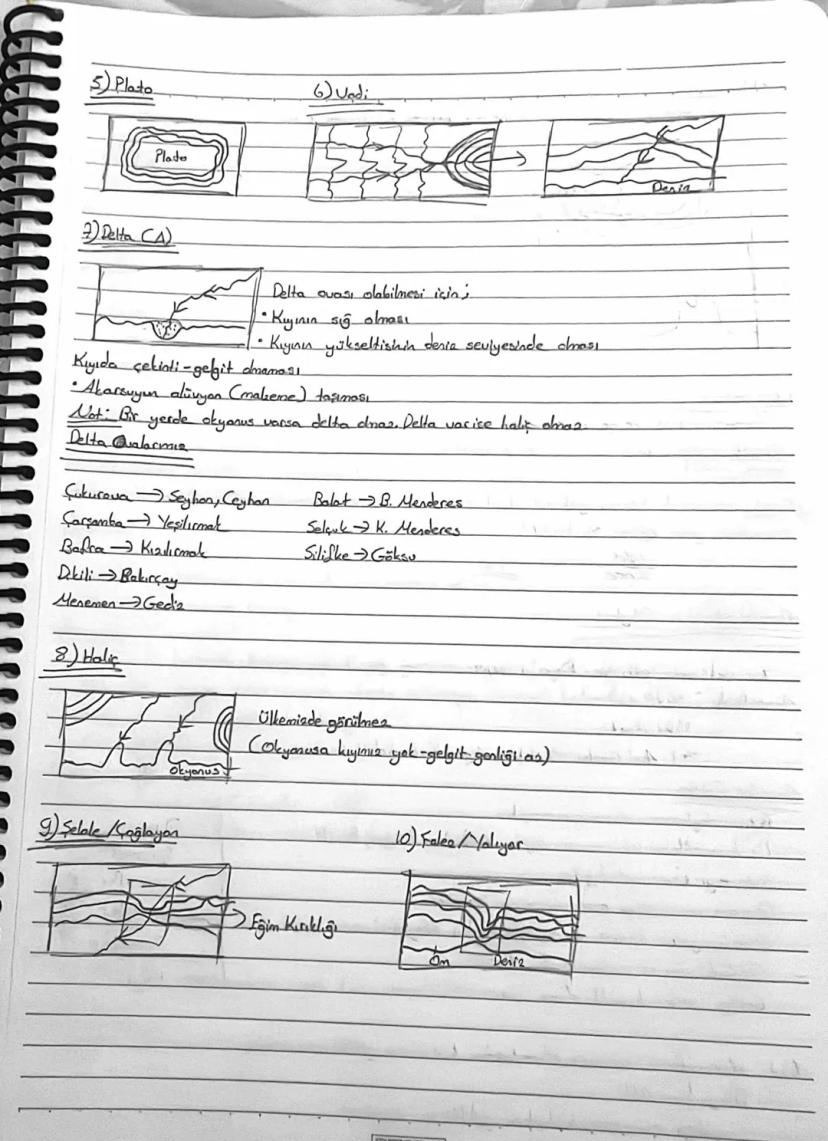 5) Plato
6) Vadi
Plato
Deniz
7) Delta (Δ)
Delta ovası olabilmesi için;
• Kıyının sığ olması
• Kıyının yükseltisinin deniz seviyesinde olması
Kıyıda çekinti-gelgit olmaması
• Akarsuyun alüvyon (malzeme) taşıması
Not: Bir yerde okyanus varsa delta olmaz. Delta var ise haliç olmaz
Delta Ovalarımız
Çukurova → Seyhan, Ceyhan
Balat → B. Menderes
Çarşamba → Yeşilırmak
Selçuk → K. Menderes
Bafra → Kızılırmak
Silifke → Göksu
Dikili → Bakırçay
Menemen → Gediz
8) Haliç
Ülkemizde görülmez
(Okyanusa kıyımız yok-gelgit genliği az)
Okyanus
9) Şelale / Çağlayan
10) Falez / Yalıyar
Eğim Kırıklığı
0m
Deniz